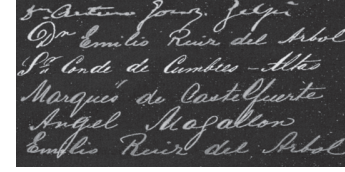 Sr. Arturo Gomz. Zelpi
Dn Emilio Ruiz del Arbol
Sr. Conde de Cumbres-Altas
Marqués de Castelfuerte
Angel Magallon
Emilio Ruiz del Arbol